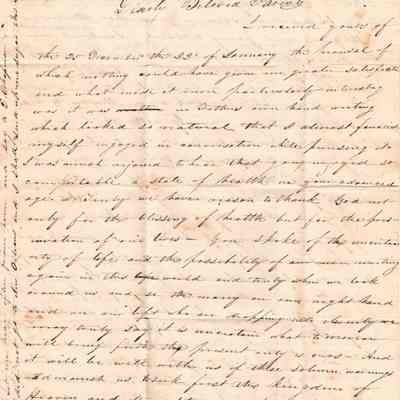 Dearly Beloved Parents
I received yours of
the 25 December the 22d of January the perusal of
which nothing could have given me greater satisfaction
and what made it more particularly interesting
was it was in Fathers own hand writing
which looked so natural that I almost fancied
myself engaged in conversation while perusing it
I was much rejoiced to hear that you enjoyed so
comfortable a state of health in your advanced
ages surely we have reason to thank God not
only for the blessing of health but for the pres-
ervation of our lives — You spoke of the uncertain
ty of life and the possibility of our ever meeting
again in this world and truly when we look
around us and see the many on our right hand
and on our left who are dropping into eternity we
may truly say it is uncertain what tomorrow
will bring forth the present only is ours — And
it will be well with us if these solemn warnings
admonish us to seek first the kingdom of
Heaven and